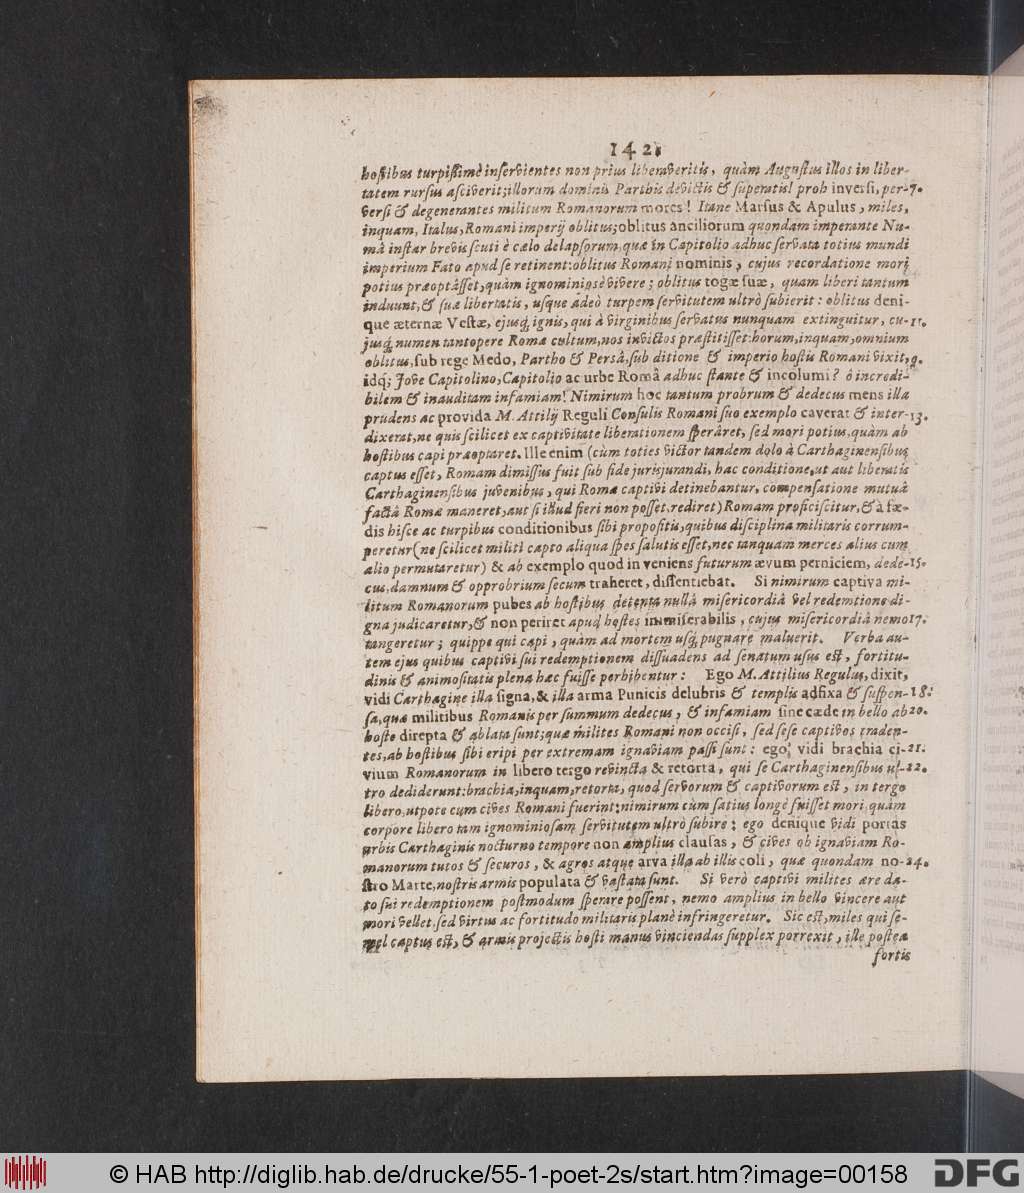 142.
hostibus turpissimè inservientes non prius liberaveritis, quàm Augustus illos in liber-
tatem rursus asciverit; illorum dominis Parthis devictis & superatis! proh inversi, per- 7.
versi & degenerantes militum Romanorum mores! Itane Marsus & Apulus, miles,
inquam, Italus, Romani imperij oblitus; oblitus anciliorum quondam imperante Nu-
mâ instar brevis scuti è cælo delapsorum, quæ in Capitolio adhuc servata totius mundi
imperium Fato apud se retinent: oblitus Romani nominis, cujus recordatione mori
potius præoptâsset, quàm ignominiosè vivere; oblitus togæ suæ, quam liberi tantum
induunt, & suæ libertatis, usque adeò turpem servitutem ultrò subierit: oblitus deni-
que æternæ Vestæ, ejusq; ignis, qui à virginibus servatus nunquam extinguitur, cu- 11.
jusq; numen tantopere Romæ cultum, nos invictos præstitisset: horum, inquam, omnium
oblitus, sub rege Medo, Partho & Persâ, sub ditione & imperio hostis Romani vixit, 9.
idq; Jove Capitolino, Capitolio ac urbe Româ adhuc stante & incolumi? ô incredi-
bilem & inauditam infamiam! Nimirum hoc tantum probrum & dedecus mens illa
prudens ac provida M. Attilij Reguli Consulis Romani suo exemplo caverat & inter- 13.
dixerat, ne quis scilicet ex captivitate liberationem sperâret, sed mori potius, quàm ab
hostibus capi præoptaret. Ille enim (cùm toties victor tandem dolo à Carthaginensibus
captus esset, Romam dimissus fuit sub fide jurisjurandi, hac conditione, ut aut liberatis
Carthaginensibus juvenibus, qui Romæ captivi detinebantur, compensatione mutuâ
factâ Romæ maneret, aut si illud fieri non posset, rediret) Romam proficiscitur, & à fœ-
dis hisce ac turpibus conditionibus sibi propositis, quibus disciplina militaris corrum-
peretur (ne scilicet militi capto aliqua spes salutis esset, nec tanquam merces alius cum
alio permutaretur) & ab exemplo quod in veniens futurum ævum perniciem, dede- 15.
cus, damnum & opprobrium secum traheret, dissentiebat. Si nimirum captiva mi-
litum Romanorum pubes ab hostibus detenta nullâ misericordiâ vel redemtione di-
gna judicaretur, & non periret apud hostes immiserabilis, cujus misericordiâ nemo 17.
tangeretur; quippe qui capi, quàm ad mortem usq; pugnare maluerit. Verba au-
tem ejus quibus captivi sui redemptionem dissuadens ad senatum usus est, fortitu-
dinis & animositatis plena hæc fuisse perhibentur: Ego M. Attilius Regulus, dixit,
vidi Carthagine illa signa, & illa arma Punicis delubris & templis adfixa & suspen- 18.
sa, quæ militibus Romanis per summum dedecus, & infamiam sine cæde in bello ab 20.
hoste direpta & ablata sunt; quæ milites Romani non occisi, sed sese captivos traden-
tes, ab hostibus sibi eripi per extremam ignaviam passi sunt: ego vidi brachia ci- 21.
vium Romanorum in libero tergo revincta & retorta, qui se Carthaginensibus ul- 22.
tro dediderunt: brachia, inquam, retorta, quod servorum & captivorum est, in tergo
libero, utpote cum cives Romani fuerint; nimirum cùm satius longè fuisset mori, quàm
corpore libero tam ignominiosam servitutem ultrò subire: ego denique vidi portas
urbis Carthaginis nocturno tempore non amplius clausas, & cives ob ignaviam Ro-
manorum tutos & securos, & agros atque arva illa ab illis coli, quæ quondam no- 24.
stro Marte, nostris armis populata & vastata sunt. Si verò captivi milites ære da-
to sui redemptionem postmodum sperare possent, nemo amplius in bello vincere aut
mori vellet, sed virtus ac fortitudo militaris planè infringeretur. Sic est, miles qui se-
mel captus est, & armis projectis hosti manus vinciendas supplex porrexit, ille posteà
fortis
© HAB http://diglib.hab.de/drucke/55-1-poet-2s/start.htm?image=00158
DFG